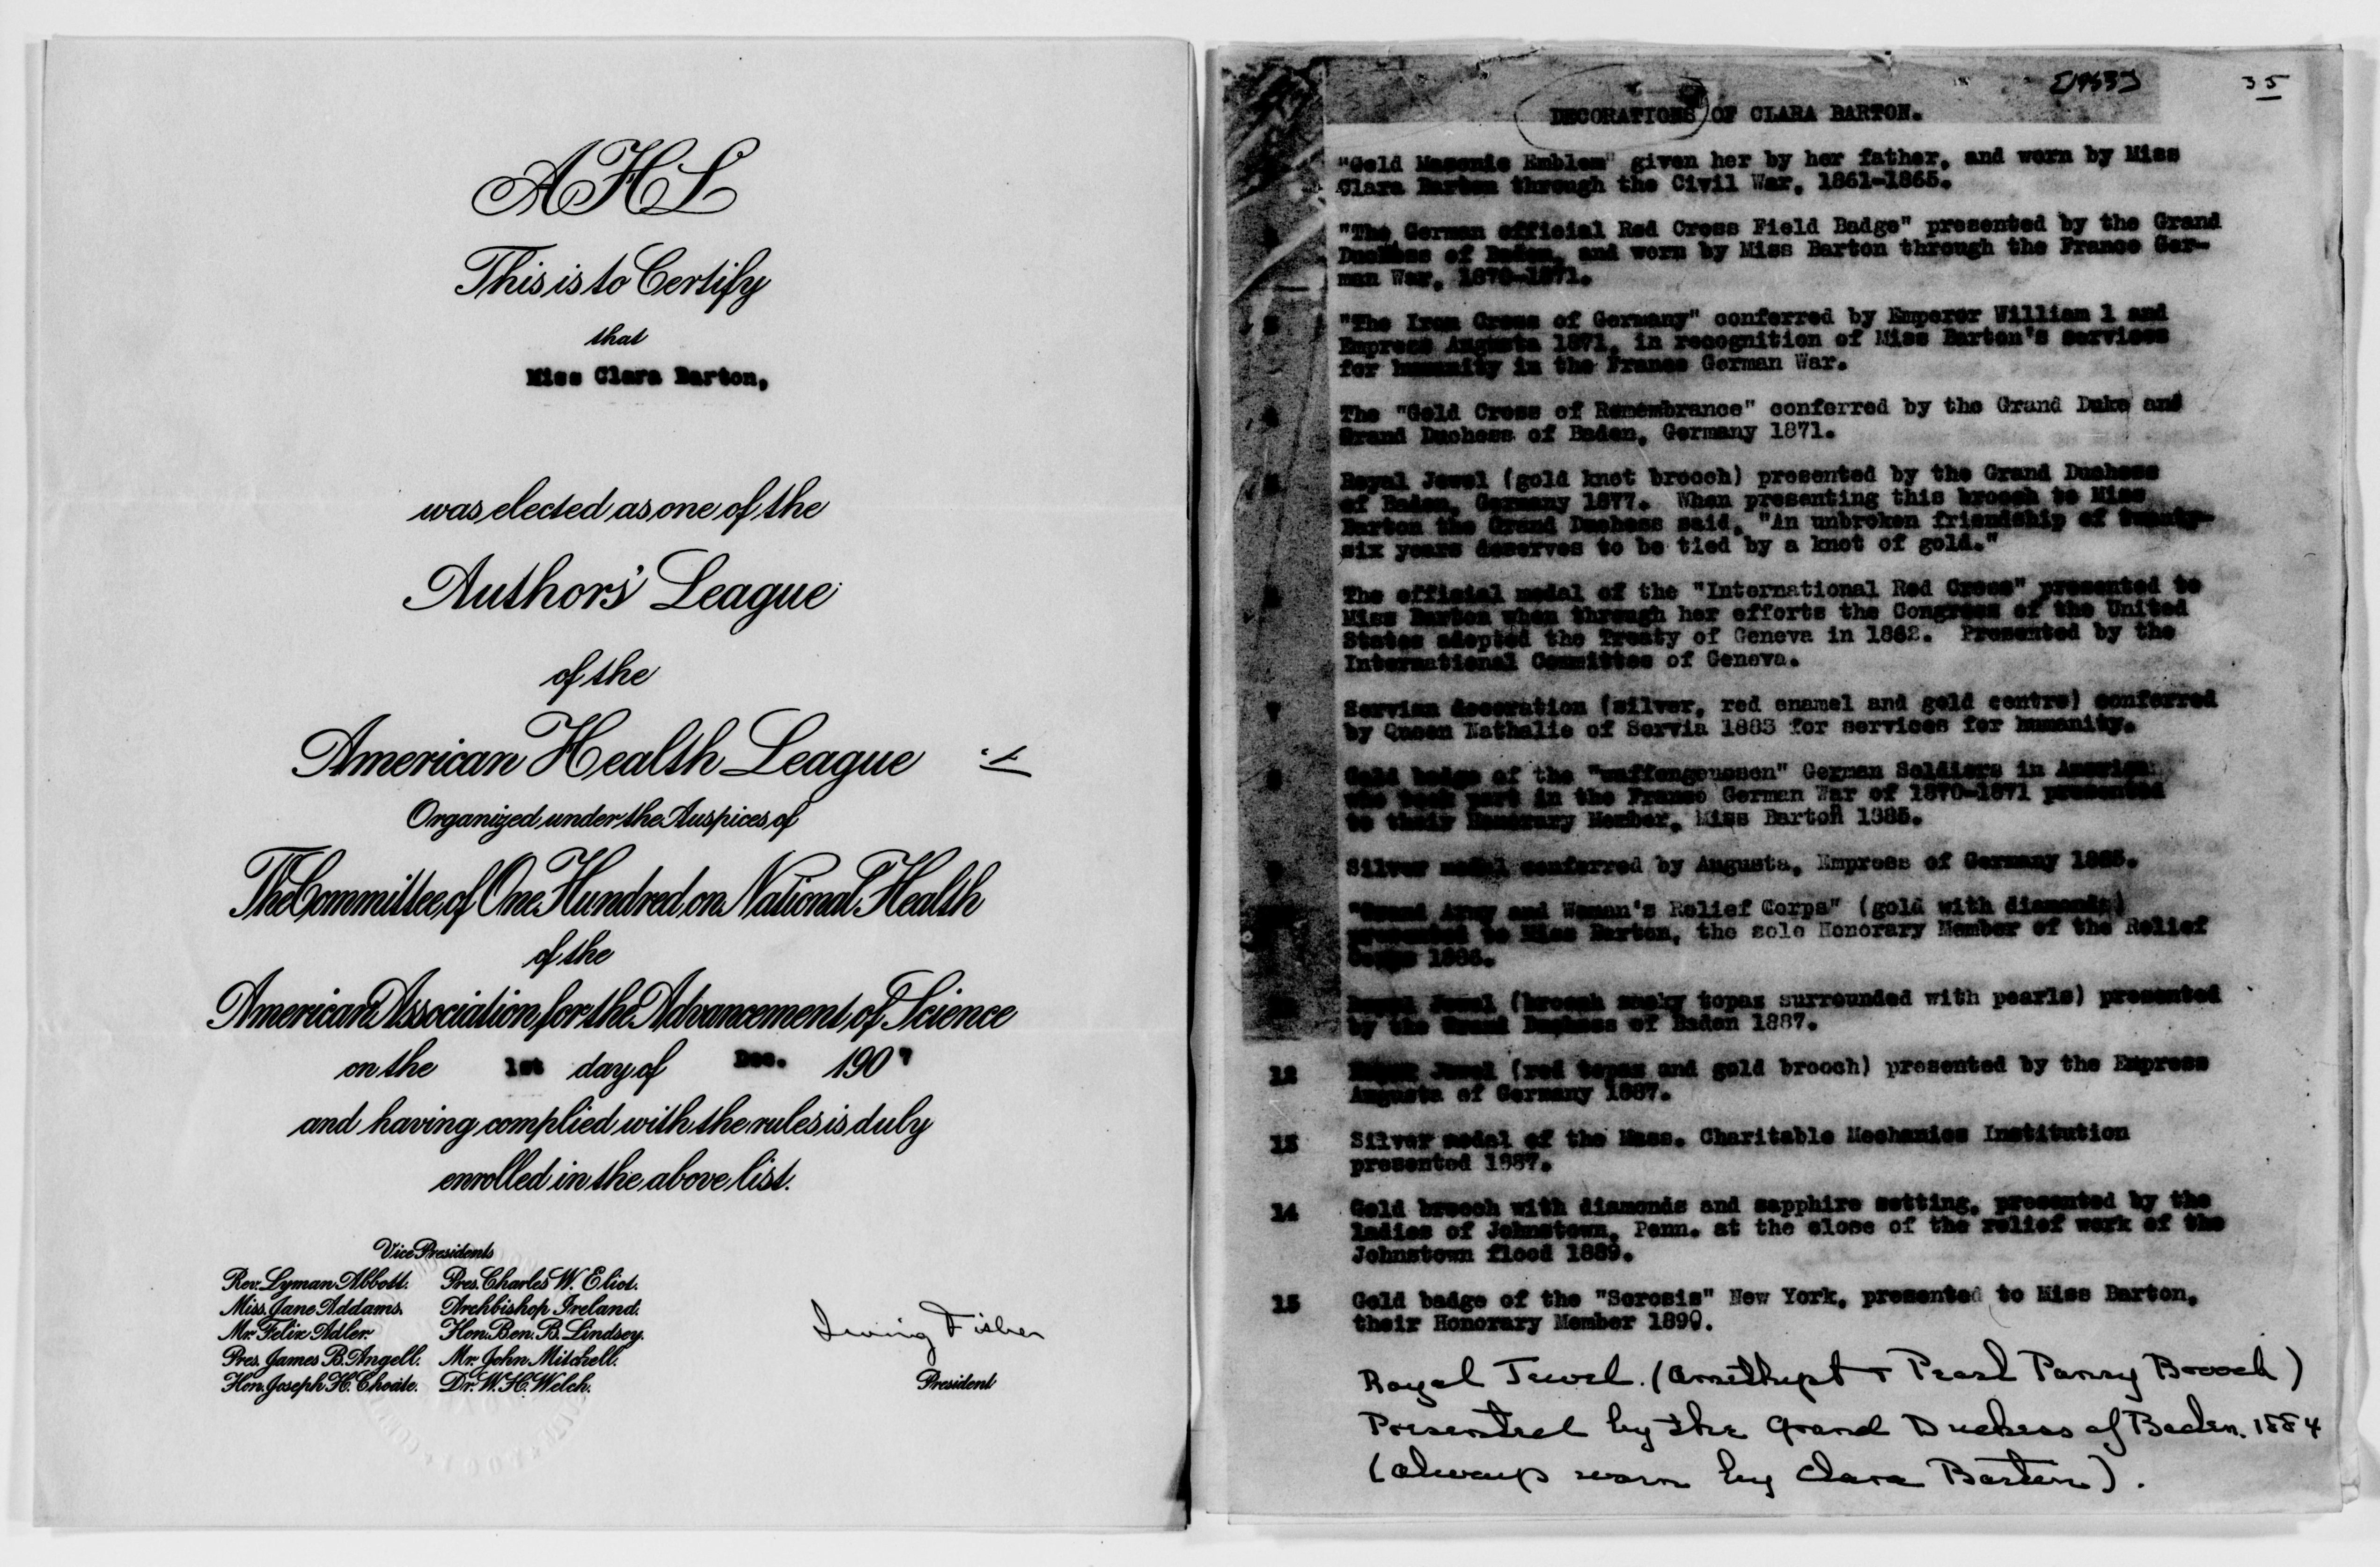 AHL
This is to Certify
that
Miss Clara Barton,
was elected as one of the
Authors' League
of the
American Health League
Organized under the Auspices of
The Committee of One Hundred on National Health
of the
American Association for the Advancement of Science
on the 1st day of Dec. 1907
and having complied with the rules is duly
enrolled in the above list.
Vice Presidents
Rev. Lyman Abbott. Pres. Charles W. Eliot.
Miss. Jane Addams. Archbishop Ireland.
Mr. Felix Adler. Hon. Ben. B. Lindsey.
Pres. James B. Angell. Mr. John Mitchell.
Hon. Joseph H. Choate. Dr. W. H. Welch.
Irving Fisher
President
35
DECORATIONS OF CLARA BARTON.
"Gold Masonic Emblem" given her by her father, and worn by Miss
Clara Barton through the Civil War, 1861-1865.
"The German official Red Cross Field Badge" presented by the Grand
Duchess of Baden, and worn by Miss Barton through the Franco Ger-
man War, 1870-1871.
"The Iron Cross of Germany" conferred by Emperor William 1 and
Empress Augusta 1871, in recognition of Miss Barton's services
for humanity in the Franco German War.
The "Gold Cross of Remembrance" conferred by the Grand Duke and
Grand Duchess of Baden, Germany 1871.
Royal Jewel (gold knot brooch) presented by the Grand Duchess
of Baden, Germany 1877. When presenting this brooch to Miss
Barton the Grand Duchess said, "An unbroken friendship of twenty-
six years deserves to be tied by a knot of gold."
The official medal of the "International Red Cross" presented to
Miss Barton when through her efforts the Congress of the United
States adopted the Treaty of Geneva in 1882. Presented by the
International Committee of Geneva.
7 Servian decoration (silver, red enamel and gold centre) conferred
by Queen Nathalie of Servia 1883 for services for humanity.
Gold badge of the "waffengenossen" German Soldiers in America
who took part in the Franco German War of 1870-1871 presented
to their Honorary Member, Miss Barton 1885.
Silver medal conferred by Augusta, Empress of Germany 1885.
"Grand Army and Woman's Relief Corps" (gold with diamonds)
presented to Miss Barton, the sole Honorary Member of the Relief
Corps 1886.
Royal Jewel (brooch smoky topaz surrounded with pearls) presented
by the Grand Duchess of Baden 1887.
12 Royal Jewel (red topaz and gold brooch) presented by the Empress
Augusta of Germany 1887.
13 Silver medal of the Mass. Charitable Mechanics Institution
presented 1887.
14 Gold brooch with diamonds and sapphire setting, presented by the
ladies of Johnstown, Penn. at the close of the relief work of the
Johnstown flood 1889.
15 Gold badge of the "Sorosis" New York, presented to Miss Barton,
their Honorary Member 1890.
Royal Jewel. (Amethyst + Pearl Pansy Brooch)
Presented by the Grand Duchess of Baden. 1884
(always worn by Clara Barton).